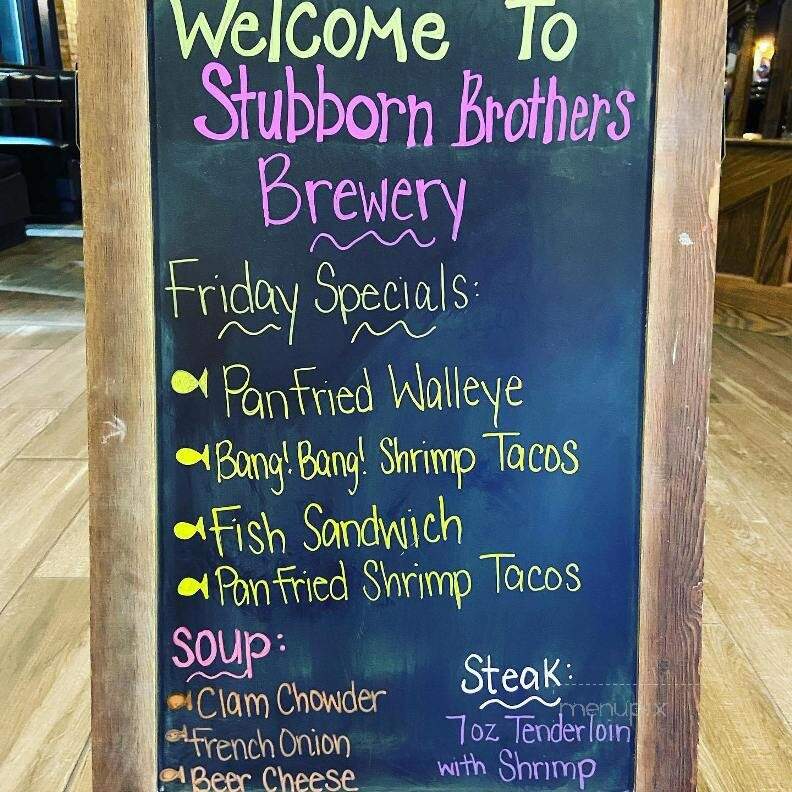 Welcome To
Stubborn Brothers
Brewery
Friday Specials:
Pan Fried Walleye
Bang! Bang! Shrimp Tacos
Fish Sandwich
Pan Fried Shrimp Tacos
Soup:
Clam Chowder
French Onion
Beer Cheese
Steak:
7oz Tenderloin
with Shrimp
menupix